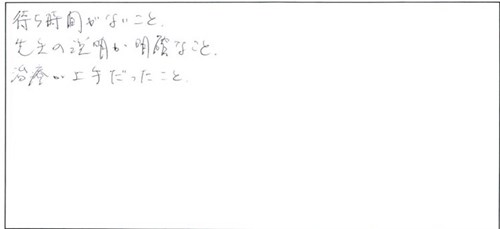 待ち時間がないこと.
先生の説明が明確なこと.
治療が上手だったこと.